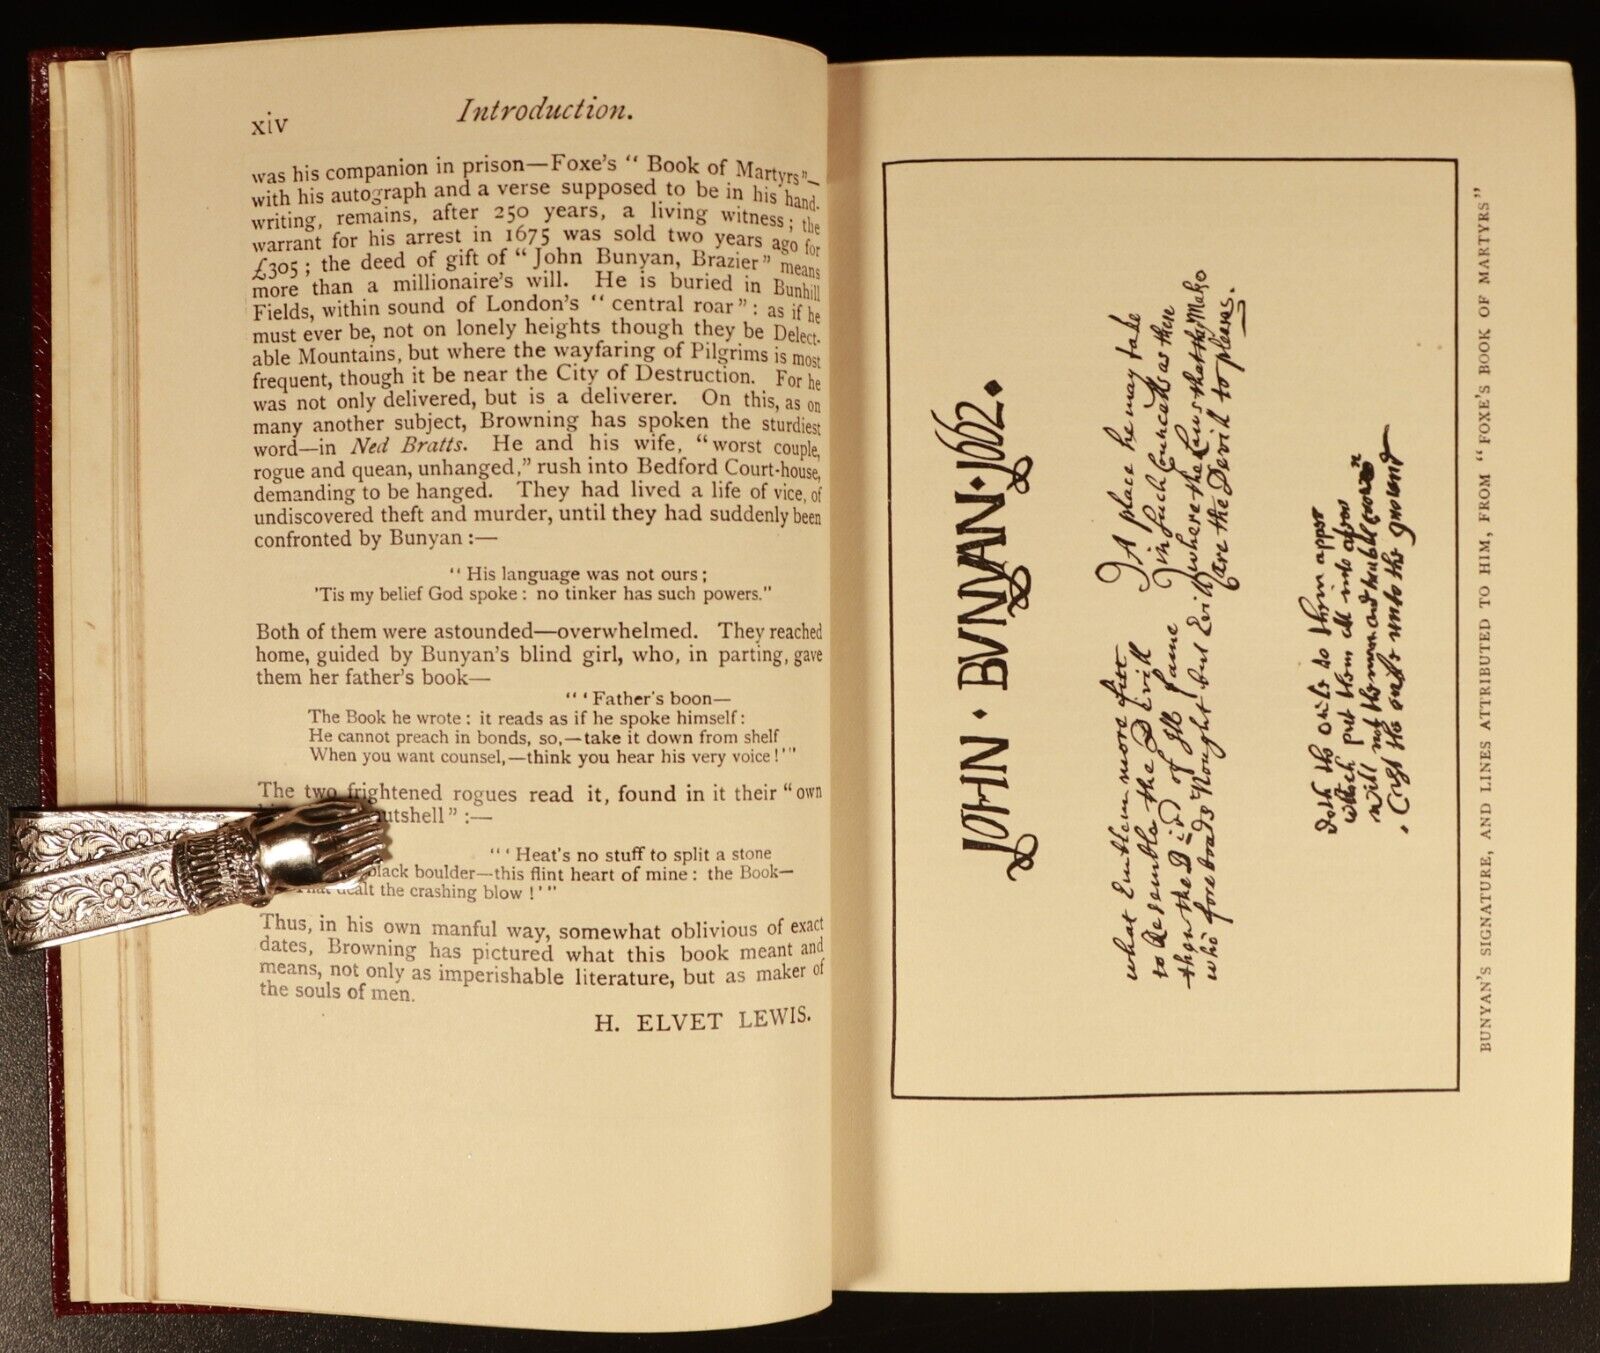 xiv
Introduction.
was his companion in prison—Foxe's “ Book of Martyrs”—
with his autograph and a verse supposed to be in his hand-
writing, remains, after 250 years, a living witness ; the
warrant for his arrest in 1675 was sold two years ago for
£305 ; the deed of gift of “ John Bunyan, Brazier” means
more than a millionaire's will. He is buried in Bunhill
Fields, within sound of London's “ central roar” : as if he
must ever be, not on lonely heights though they be Delect-
able Mountains, but where the wayfaring of Pilgrims is most
frequent, though it be near the City of Destruction. For he
was not only delivered, but is a deliverer. On this, as on
many another subject, Browning has spoken the sturdiest
word—in Ned Bratts. He and his wife, “worst couple,
rogue and quean, unhanged,” rush into Bedford Court-house,
demanding to be hanged. They had lived a life of vice, of
undiscovered theft and murder, until they had suddenly been
confronted by Bunyan :—
“ His language was not ours ;
'Tis my belief God spoke : no tinker has such powers.”
Both of them were astounded—overwhelmed. They reached
home, guided by Bunyan's blind girl, who, in parting, gave
them her father's book—
“ ‘ Father's boon—
The Book he wrote : it reads as if he spoke himself :
He cannot preach in bonds, so,—take it down from shelf
When you want counsel,—think you hear his very voice !’”
The two frightened rogues read it, found in it their “own
utshell” :—
“ ‘ Heat's no stuff to split a stone
black boulder—this flint heart of mine : the Book—
That dealt the crashing blow !’”
Thus, in his own manful way, somewhat oblivious of exact
dates, Browning has pictured what this book meant and
means, not only as imperishable literature, but as maker of
the souls of men.
H. ELVET LEWIS.
JOHN · BVNYAN · 1662 ·
what Emblem more fitt
to Resemble the Devill
then the Did of the same
who forebeads Nought but Evill
If A place he may take
in such Councells as these
where the Laws that they Make
are the Devill to please.
doth the owls to them apper
which put them all into a fear
will not the man and
Cast the owle unto the ground
BUNYAN'S SIGNATURE, AND LINES ATTRIBUTED TO HIM, FROM “FOXE'S BOOK OF MARTYRS”